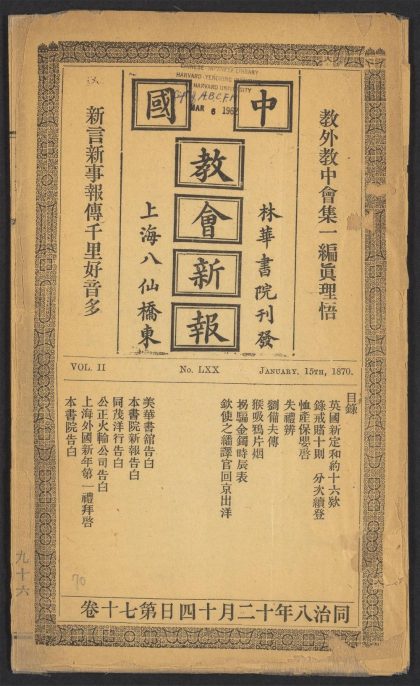 CHINESE-JAPANESE LIBRARY
HARVARD-YENCHING
HARVARD UNIVERSITY
MAR 6 196
中國
教會新報
教外教中會集一編眞理悟
新言新事報傳千里好音多
林華書院刊發
上海八仙橋東
VOL. II
No. LXX
JANUARY. 15TH, 1870.
目錄
英國新定和約十六欵
錄戒賭十則 分次續登
恤產保嬰啓
失禮辨
劉備夫傳
猴吸鴉片烟
拐騙金鐲時辰表
欽使之繙譯官回京出洋
美華書館告白
本書院新報告白
同茂洋行告白
公正火輪公司告白
上海外國新年第一禮拜啓
本書院告白
同治八年十二月十四日第七十卷
九十六
70